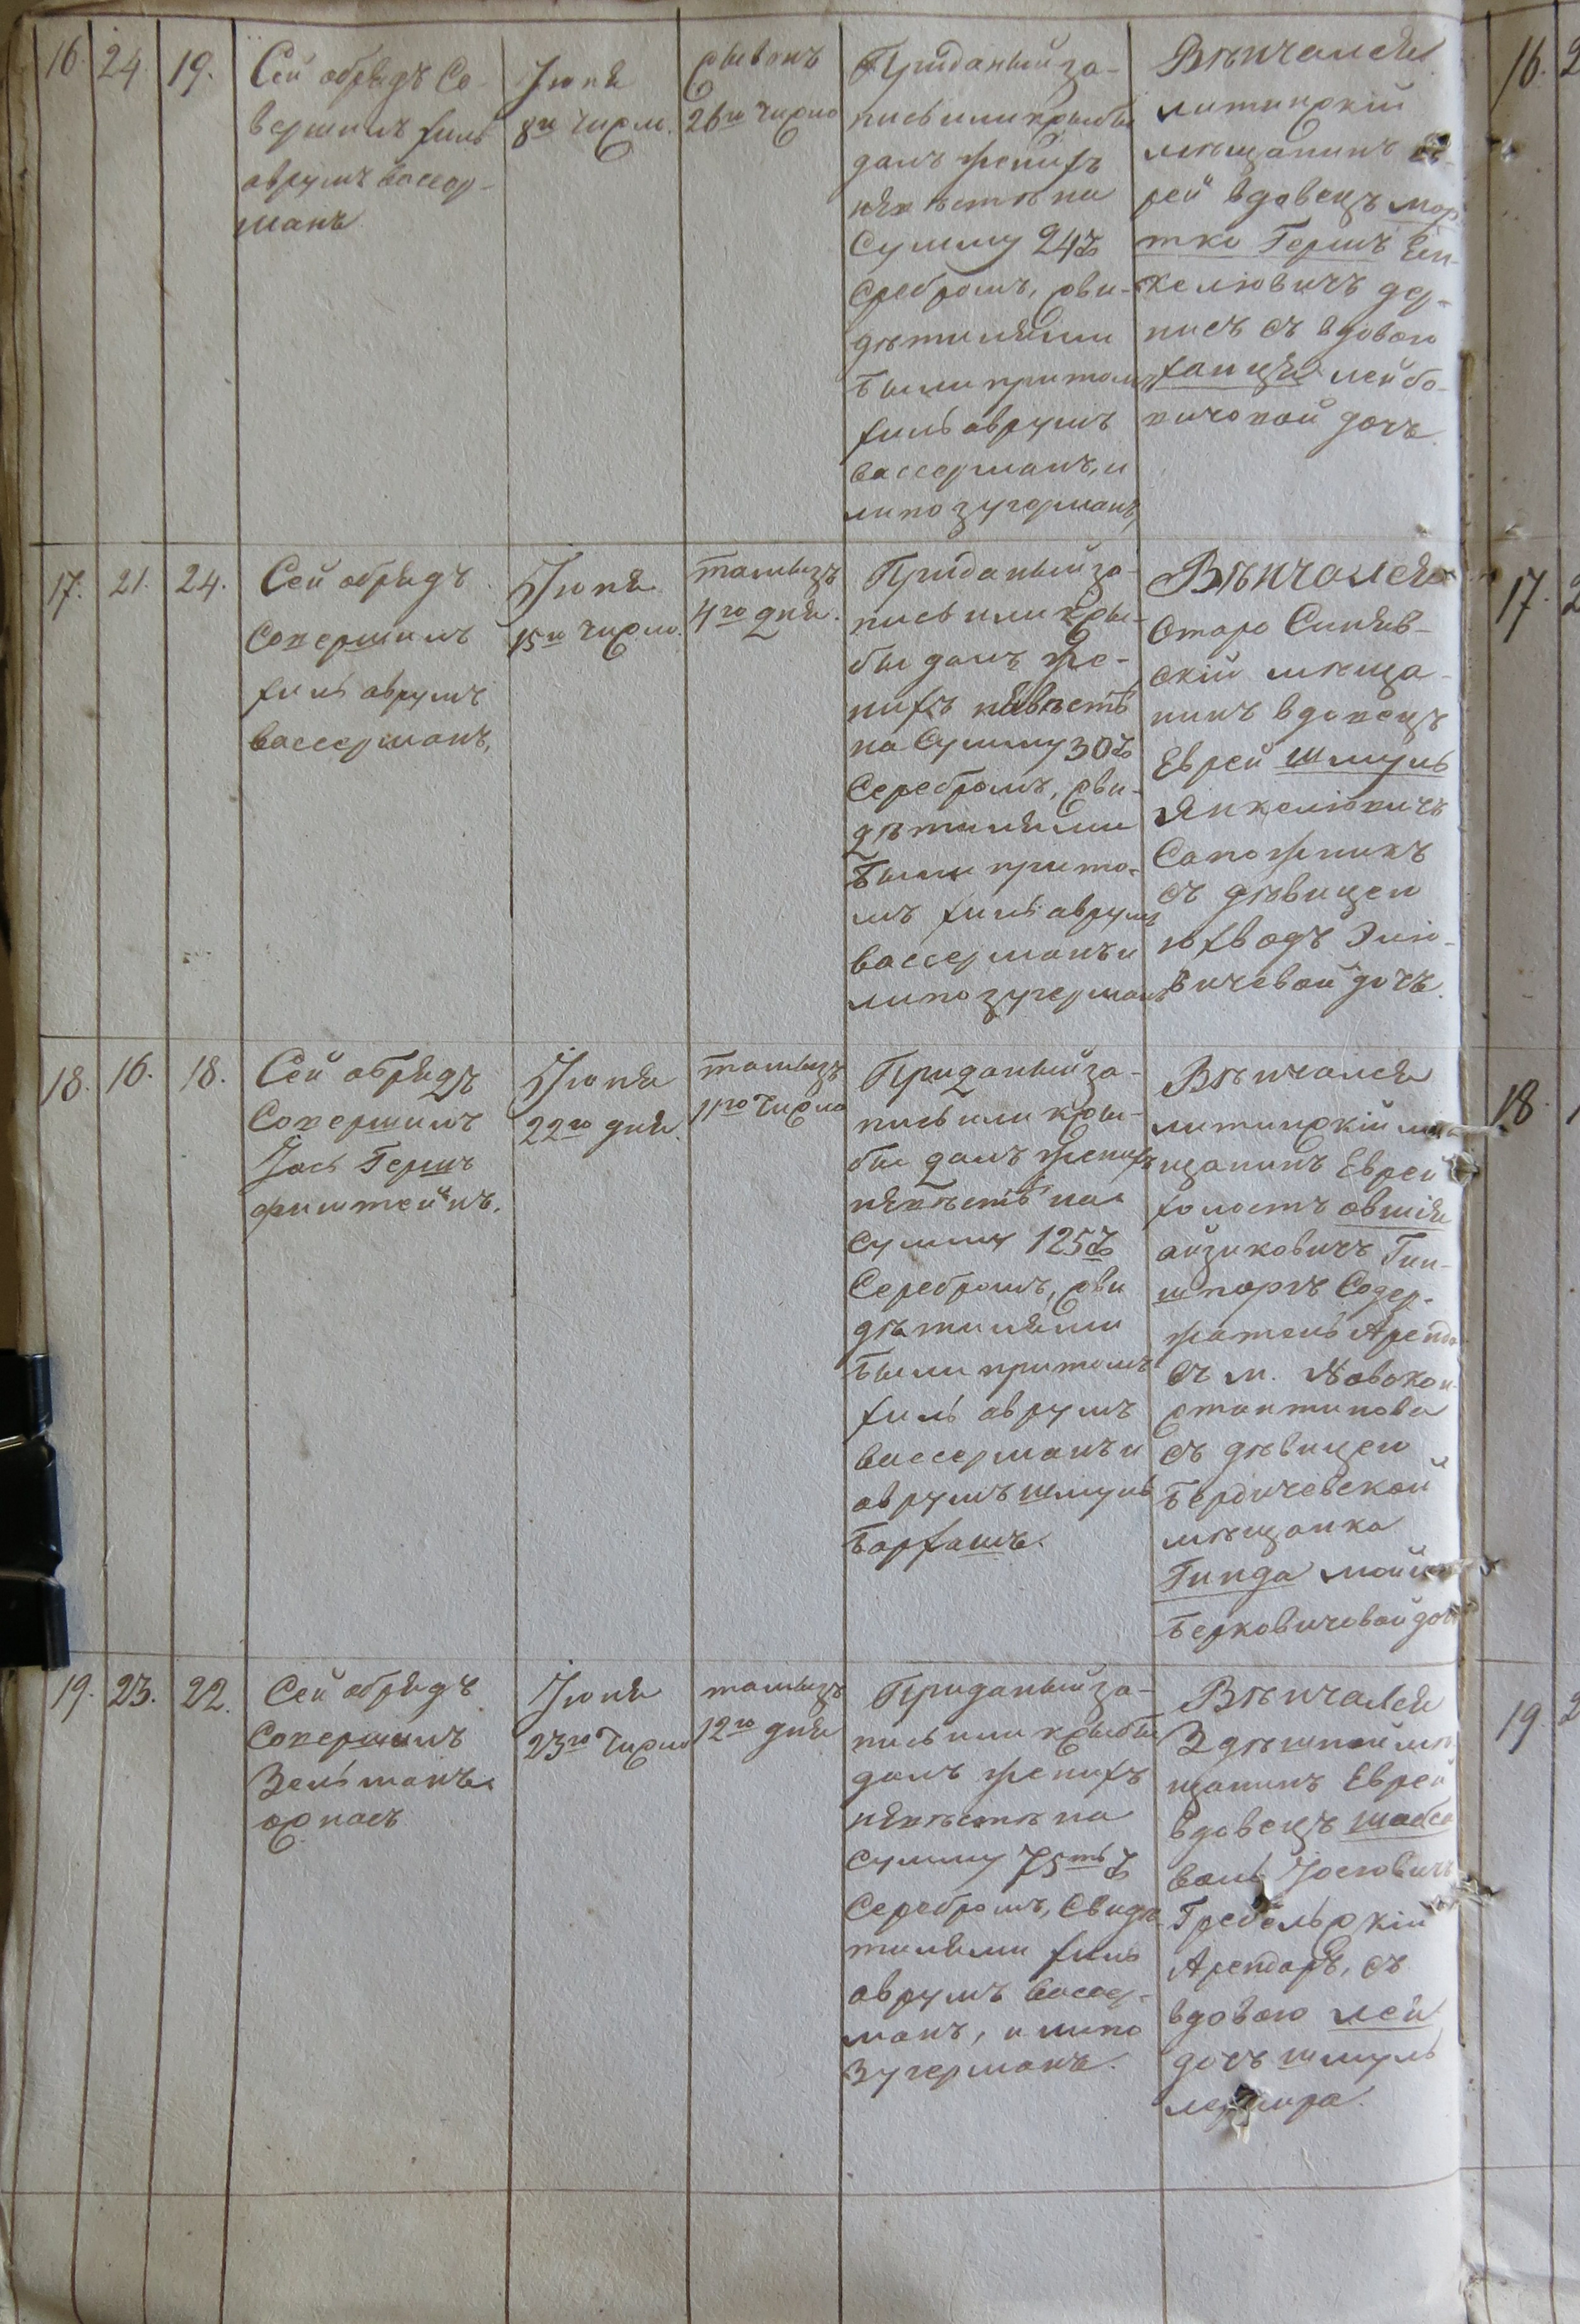 16. 24. 19.
Сей обрядъ Со-
вершилъ хиль
аврумъ вассер-
манъ
Іюня
8го числа.
сывонъ
26го числа
Приданый за-
пись или крыбы
далъ женихъ
невѣстѣ на
Сумму 24 р
Серебромъ, сви-
дѣтилями
были притомъ
хиль аврумъ
вассерманъ, и
липо зугерманъ,
Вѣнчался
литинскій
мѣщанинъ Ев-
рей вдовецъ мор-
тко Гершъ Ен-
келювичъ дер-
писъ съ вдовою
ханця лейбо-
вичовой дочъ.
17. 21. 24.
Сей обрядъ
Совершилъ
хиль аврумъ
вассерманъ,
Іюня
15го числа.
тамызъ
4го дня.
Приданый за-
пись или кры-
бы далъ же-
нихъ невѣстѣ
на Сумму 30 р
Серебромъ, сви-
дѣтилями
были прито-
мъ хиль аврумъ
вассерманъ и
липо зугерманъ
Вѣнчался
Старо Синяв-
скій мѣща-
нинъ вдовецъ
Еврей шмуль
Янкелювичъ
Сапожникъ
съ дѣвицею
юхводъ Элио-
вичевой дочъ.
18. 16. 18.
Сей обрядъ
Совершилъ
Іось Гершъ
финштейнъ.
Іюня
22го дня.
тамызъ
11го числа
Приданый за-
пись или кры-
бы далъ женихъ
невѣстѣ на
Сумму 125 р
Серебромъ, сви
дѣтилями
были притомъ
хиль аврумъ
вассерманъ и
аврумъ шмуль
бархашъ.
Вѣнчался
литинскій мѣ-
щанинъ Еврей
холостъ овшія
айзиковичъ Гин-
шпаръ Содер-
жатель Аренды
съ м. Новокон-
стантинова
съ дѣвицею
Бердичевской
мѣщанка
Гинда
Берковичовой дочъ
19. 23. 22.
Сей обрядъ
Совершилъ
Зельманъ
Іюня
23го числа
тамызъ
12го дня
Приданый за-
пись или крыбы
далъ женихъ
невѣстѣ на
Сумму 75ть р
Серебромъ, Свидѣ-
тилями хиль
аврумъ вассер-
манъ, и липо
Зугерманъ.
Вѣнчался
Здѣшной мѣ-
щанинъ Еврей
вдовецъ шабса
воль Іосювичъ
Гребельскій
Арендаръ, съ
вдовою леи
дочъ шмуль

16. 2
17. 2
18. 1
19. 2